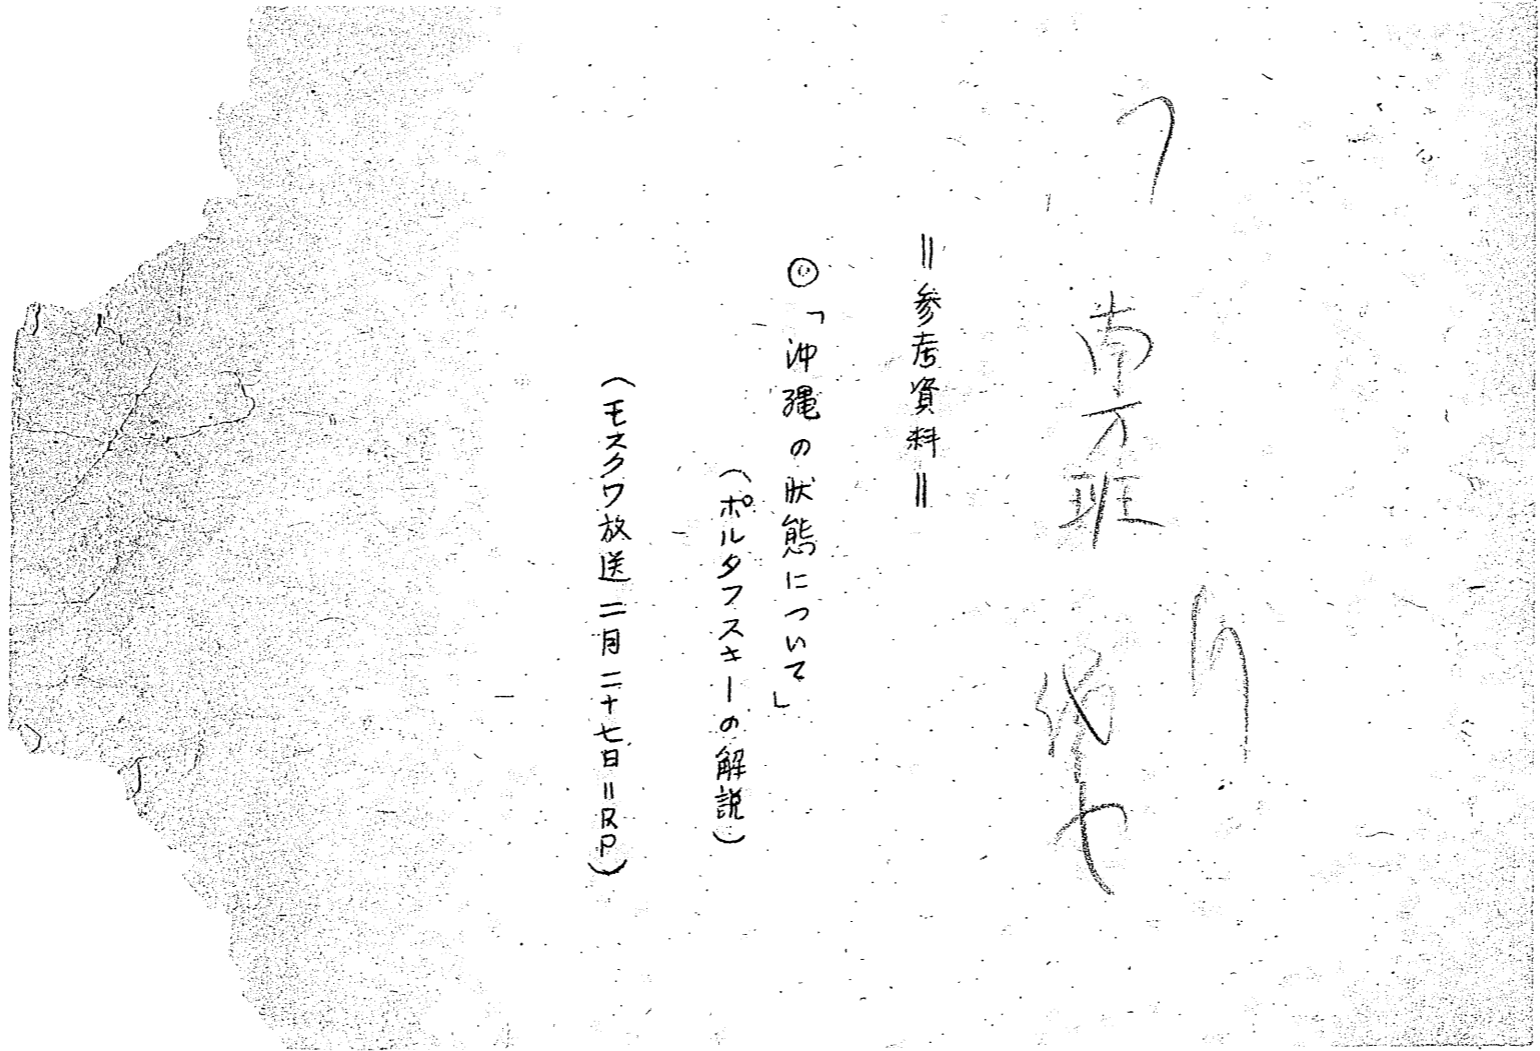 南方班
＝参考資料＝
◎「沖縄の状態について」
（ポルタフスキーの解説）
（モスクワ放送 二月二十七日＝RP）